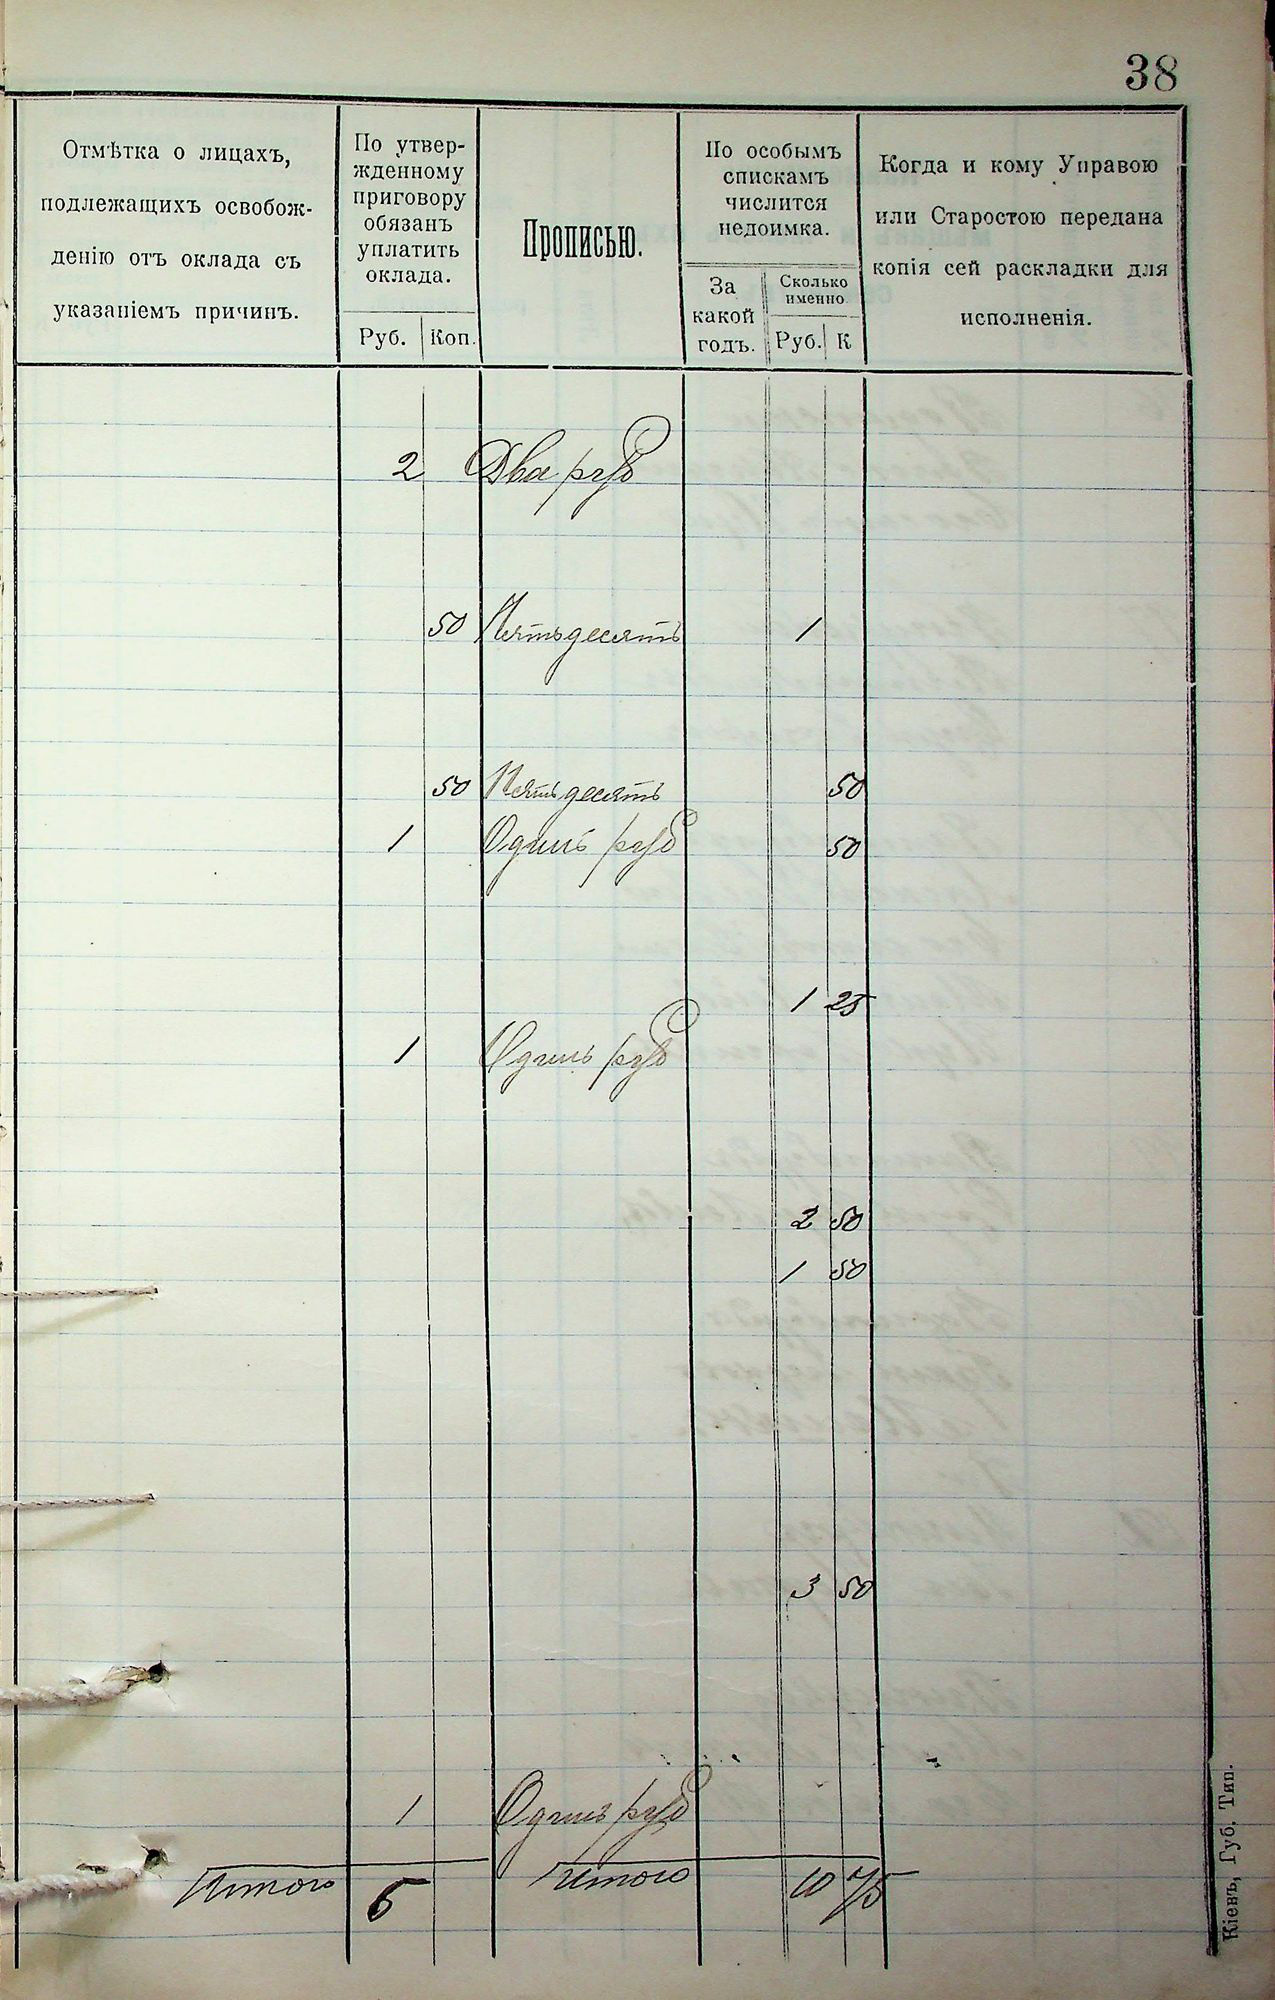 38
Отмѣтка о лицахъ,
подлежащихъ освобож-
денію отъ оклада съ
указаніемъ причинъ.
По утвер-
жденному
приговору
обязанъ
уплатить
оклада.
Руб. Коп.
Прописью.
По особымъ
спискамъ
числится
недоимка.
За
какой
годъ.
Сколько
именно
Руб. К
Когда и кому Управою
или Старостою передана
копія сей раскладки для
исполненія.
2 Два руб
50 Пятьдесятъ 1
50 Пятьдесятъ 50
1 Одинъ руб 50
1 25
1 Одинъ руб
2 50
1 50
3 50
1 Одинъ руб
Итого 6 Итого 10 75
Кіевъ, Губ. Тип.